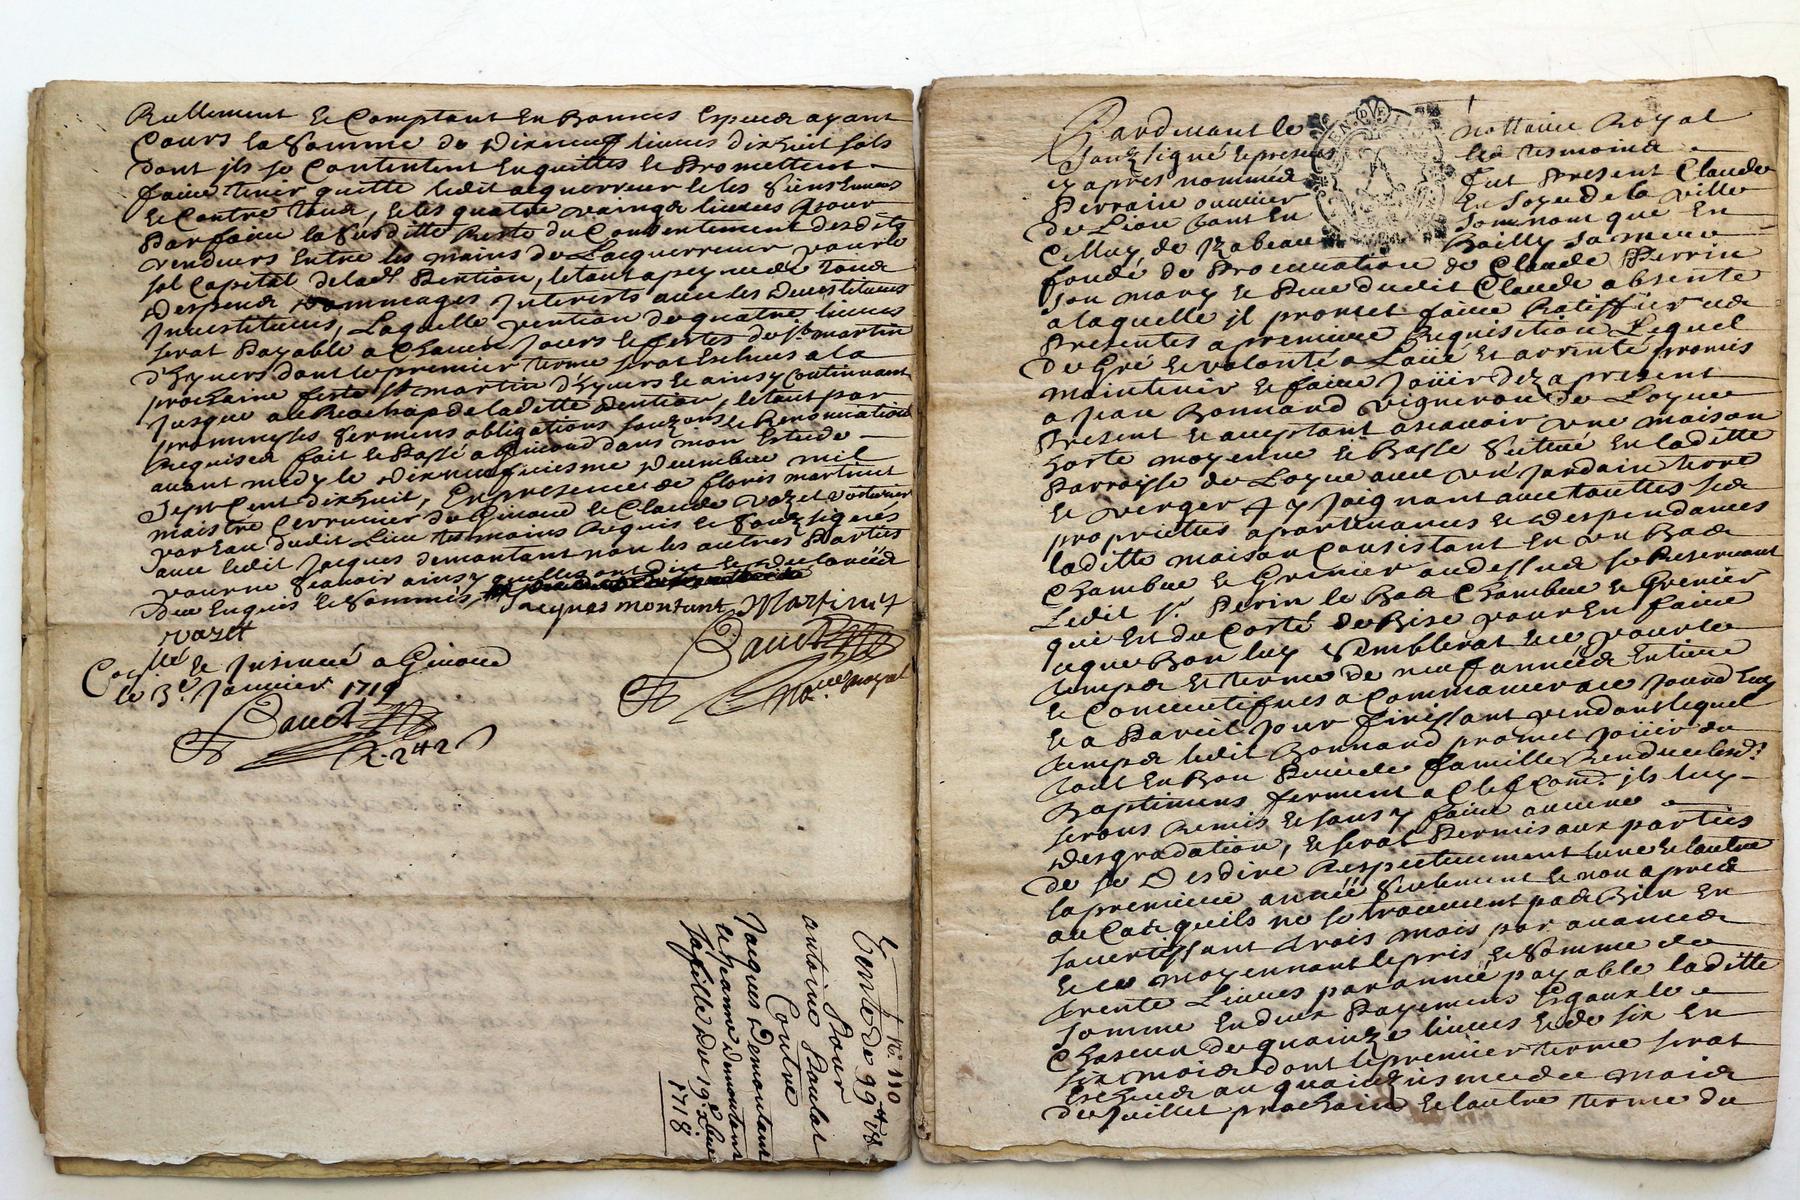 Reellement et Comptant En Bonnes Especes ayant
Cours la Somme de Dixneuf livres dixhuit sols
dont ils se Contentent Enquittes et Promettent
faire tenir quitte ledit acquerreur et les Siens Envers
et Contre tous, et les quatre vaingt livres pour
Parfaire la Susditte Reste du Consentement desdits
vendeurs Entre les mains de Lacquerreur pour le
sol Capital de lad. Pention, le tout a peyne de tous
Despens Dommeages Interests avec les Devestitures
Investitures, Laquelle Pention de quatre livres
serat Payable a Chacun Jours et festes de st. martin
d'hyvers dont le premier terme serat Escheus a la
prochaine feste st martin d'hyvers et ainsy Continuant
Jusque au Reachap de laditte Pention, le tout par
prommesses Sermens obligations et Renonciations
Requises fait et Passé a Givord dans mon Estude
avant midy le Dixneufviesme Decembre mil
Sept Cent dixhuit, En presence de floris martinet
maistre Cerrurier de Givord et Claude vozet voiturier
par Eau dudit Lieu tesmoins Requis et Souzsignés
avec ledit Jacques demontant non les autres Parties
pour ne Scavoir ainsy quelles ont dit et declarées
Deue Enquis et Sommés,
Jacques montant Martinet
vozet
Bauet
No.re Royal
Con.llé et Insinué a Givord
le 3.e Janvier 1719
Bauet
R. 242
N. 110
Vente de 99 18
Pour
antoine Paulat
Contre
Jacques Demontant
et Jeanne Demontant
sa fille du 19. xbre
1718
Pardevant le nottaire Royal
Souzsigné et presens les tesmoins
cy apres nommés fut Present Claude
Perrain ouvrier En Soye de la ville
de Lion tant En Son nom que En
Celluy de Izabeau Bailly Sa mere
fondé de Procuration de Claude Perrin
son mary et Pere dudit Claude absente
a laquelle il promet faire Ratiffier ces
Presentes a premiere Requisition Lequel
de Gré et volonté a Loüé et arrenté promis
maintenir et faire Joüir dez a present
a Jean Bonnard vigneron de Loyre
Present et acceptant ascavoir une maison
haute moyenne et Basse Scitué En laditte
Parroisse de Loyre avec un Jardain terre
et verger y Joignant avec touttes ses
propriettes apartenances et despendances
laditte maison Consistant En un Bas
Chambre et Grenier au dessus se Reservant
Ledit Sr. Perin le Bas Chambre et Grenier
qui Est du Costé de Bize pour En faire
ceque Bon luy Semblerat et ce pour le
temps et terme de neuf années Entiere
et Consecutifves a Commancer ce Jourd huy
et a Pareil Jour finissant pendant lequel
temps ledit Bonnard promet Joüir du
tout En Bon Pere de famille Rendre lesd.
Baptimens ferment a Clef Com.e ils luy
seront Remis et sans y faire aucune
Desgradation, et serat Permis aux parties
de se Desdire Respectivement lune et lautre
la premiere année Seulement et non apres
au Cas quils ne se trouvent pas Bien En
savertissant trois mois par avances
et ce moyennant le pris et Somme de
trente Livres par année payable laditte
somme En deux Payemens Esgaux
Chascun de quainze livres et de six En
six mois dont le premier terme serat
Escheus au quainziesme du mois
de Juillet prochain et lautre terme du